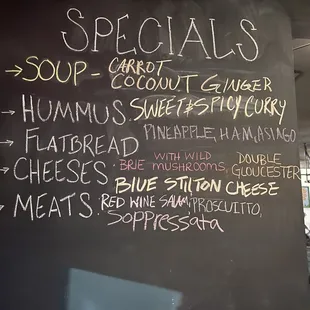 SPECIALS
→ SOUP - CARROT COCONUT GINGER
→ HUMMUS. SWEET & SPICY CURRY
→ FLATBREAD PINEAPPLE, HAM, ASIAGO
→ CHEESES. BRIE WITH WILD MUSHROOMS, DOUBLE GLOUCESTER
BLUE STILTON CHEESE
→ MEATS. RED WINE SALAMI, PROSCUITTO,
SOPPRESSATA